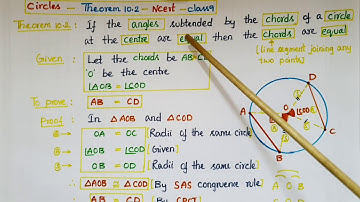 Circles – Theorem 10.2 – NCERT – class 9
Theorem 10.2: If the angles subtended by the chords of a circle
at the centre are equal then the chords are equal
(line segment joining any
two points)
Given : Let the chords be AB = CD
'O' be the centre
∠AOB = ∠COD
To prove : AB = CD
Proof : In △AOB and △COD
OA = OC [Radii of the same circle]
∠AOB = ∠COD [Given]
OB = OD [Radii of same circle)
∴ △AOB ≅ △COD [By SAS congruence rule]
AB = CD [By CPCT]
D
A
O
B
C
A O B